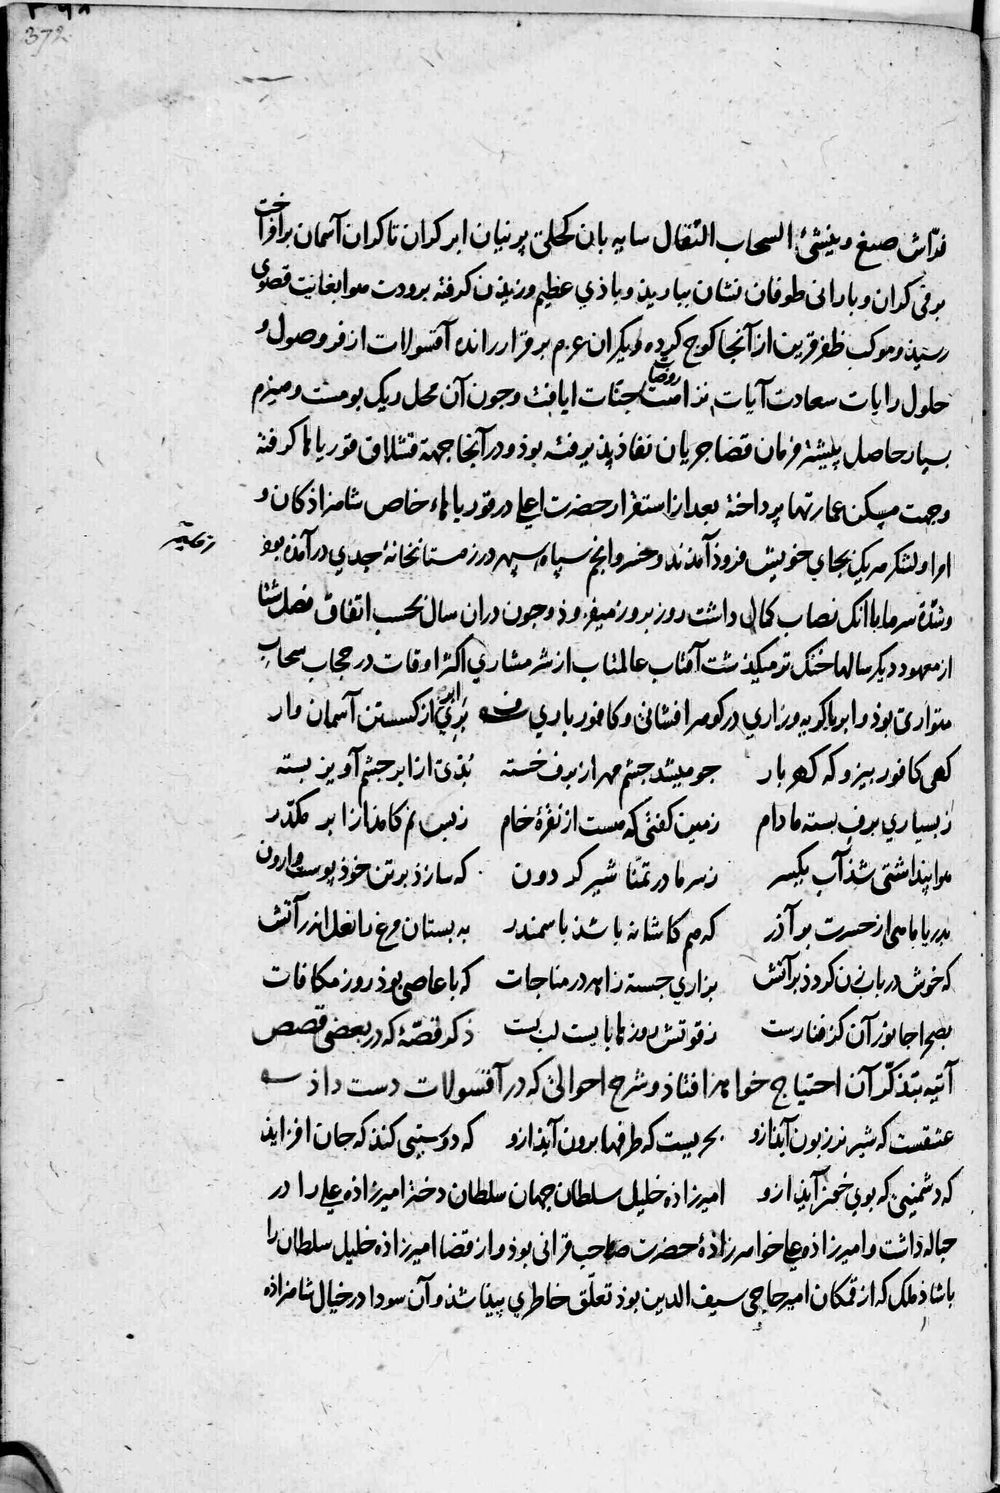 372
فرّاش صنع وینشئ السحاب الثقال سایه بان کحلی پرنیان ابر کران تا کران آسمان برافراخت
برفی کران و بارانی طوفان نشان ببارید و باذی عظیم وزیدن کرفته برودت هوا بغایت قصوی
رسید و موکب ظفر قرین از آنجا کوچ کرده یکران عزم بر قرار رانده آقسولات از فر وصول و
حلول رایات سعادت آیات نزاهت روضات جنّات یافت و چون آن محل ریک بومست و هیزم
بسیار حاصل پیشتر فرمان قضا جریان نفاذ پذیرفته بوذ و در آنجا جهة قشلاق قوریاها کرفته
وجهت مسکن عمارتها پرداخته بعد از استقرار حضرت اعلی در قوریاهاء خاص شاهزاذکان و
امرا و لشکر هریک بجای خویش فروذ آمدند و خسرو انجم سپاه سپهر در زمستانخانهٔ جدی درآمده بود
وشدّة سرما با آنک نصاب کمال داشت روز بروز میفزوذ و چون دران سال بحسب اتفاق فصل شتا
از معهود دیکر سالها خنک تر میکذشت آفتاب عالمتاب از شرمساری اکثر اوقات در حجاب سحاب
متواری بوذ و ابر با کریه وزاری در کوهر افشانی و کافور باری
کهی کافور بیز و که کهر بار
چو میشد چشم مهر از برف خسته
بدی از ابر چشم آویز بسته
ز بسیاری برف بسته مادام
زمین کفتی که هست از نقرهٔ خام
هوا پنداشتی شذ آب یکسر
ز سرما در تمنّا شیر کردون
که سازذ بر تن خوذ پوست وارون
بدریا ماهی از حسرت بر آذر
که هم کاشانه باشذ با سمندر
به بستان مرغ را نعل اندر آتش
که خوش در بابزن کردذ بر آتش
بزاری جسته زاهد در مناجات
که با عاصی بوذ روز مکافات
بصحرا جانور آن کز فنا رست
ز قوتش روزها بایست لب بست
ذکر قصّهٔ که در بعضی قصص
آتیه بتذکّر آن احتیاج خواهد افتاذ و شرح احوالی که در آقسولات دست داذ
عشقست که شیر نر زبون آیذ ازو
بحریست که طرفها برون آیذ ازو
که دوستیی کند که جان افزایذ
که دشمنیی که بوی خون آیذ ازو
امیرزاده خلیل سلطان جهان سلطان دختر امیرزاذه علی را در
حباله داشت و امیرزاذه علی خواهرزاذهٔ حضرت صاحب قرانی بوذ و از قضا امیرزاذه خلیل سلطان را
با شاذ ملک که از قمکان امیر حاجی سیف الدین بوذ تعلّق خاطری پیدا شذ و آن سودا در خیال شاهزاذه